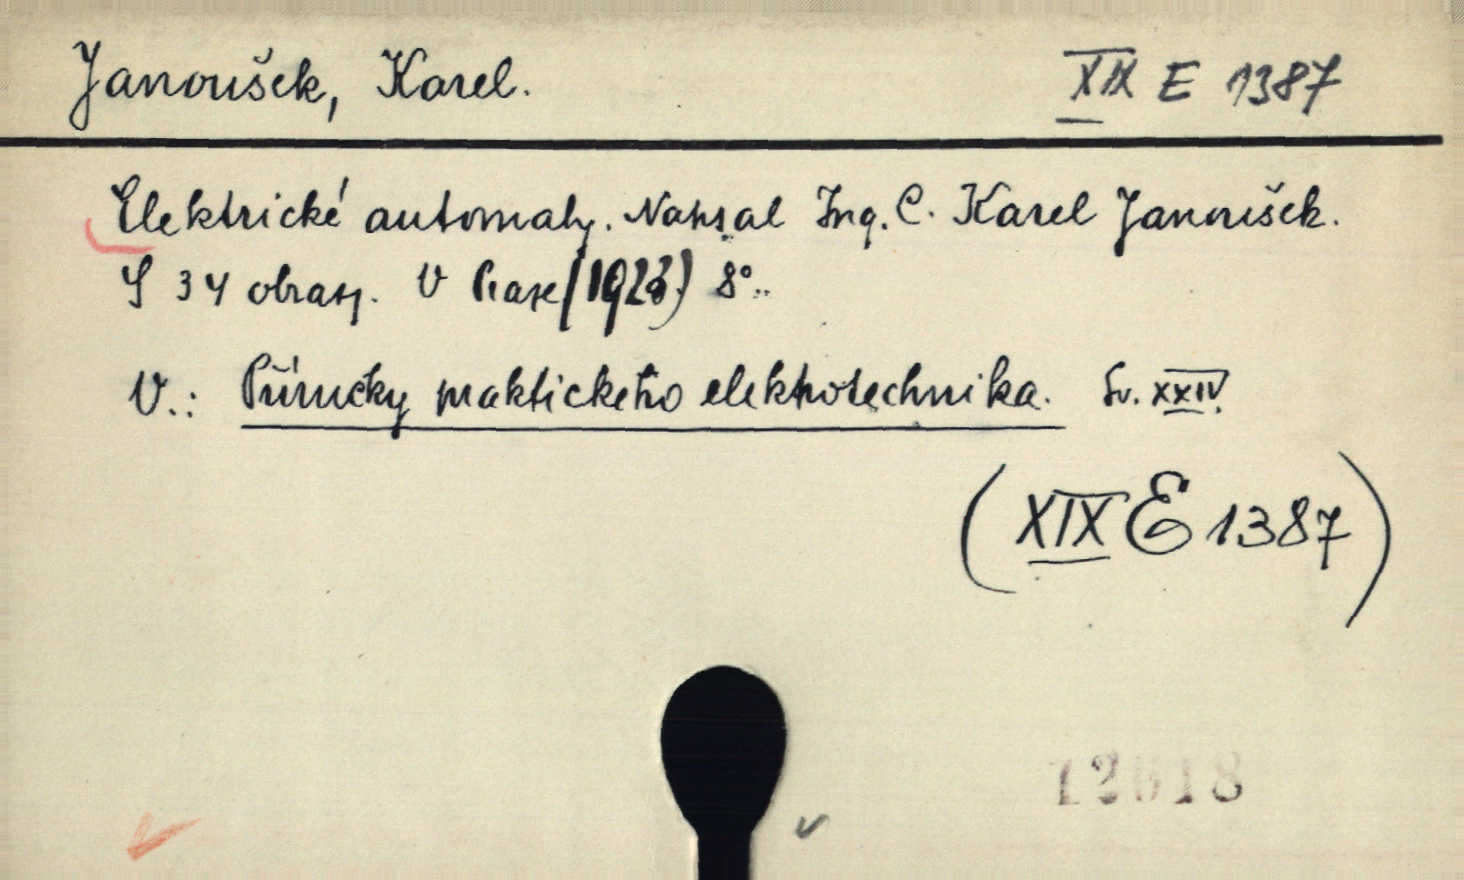 Janoušek, Karel. XIX E 1387
Elektrické automaty. Napsal Ing. C. Karel Janoušek.
S 34 obraz. V Praze 8°.
V.: Příručky praktického elektrotechnika. Sv. XXIV.
(XIX E 1387)